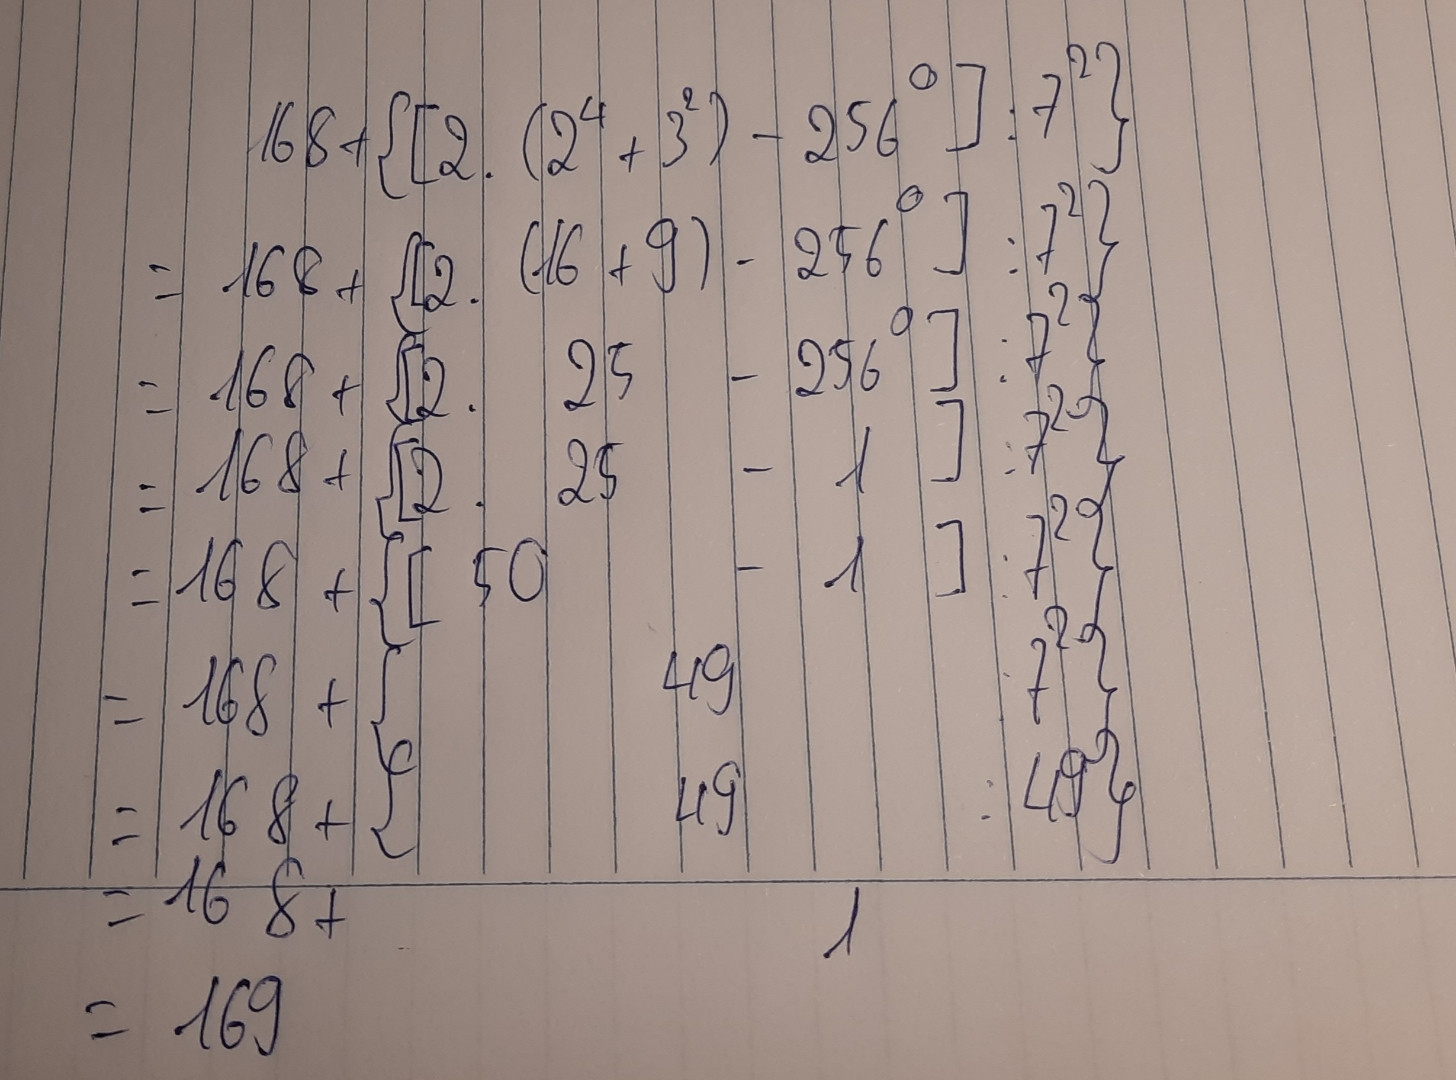 168+{[2.(2⁴+3²)-256⁰]:7²}
=168+{[2.(16+9)-256⁰]:7²}
=168+{[2. 25 -256⁰]:7²}
=168+{[2. 25 - 1 ]:7²}
=168+{[ 50 - 1 ]:7²}
=168+{ 49 :7²}
=168+{ 49 :49}
=168+ 1
=169